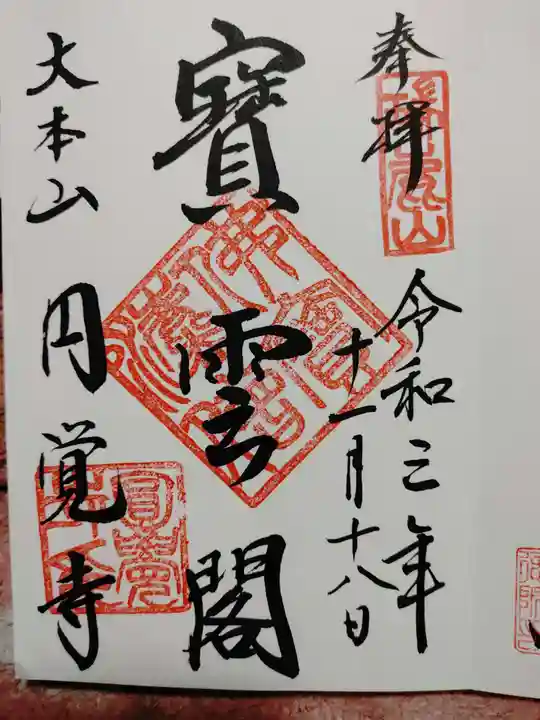 奉拝
瑞鹿山
令和三年
十一月十八日
寳雲閣
大本山 円覚寺